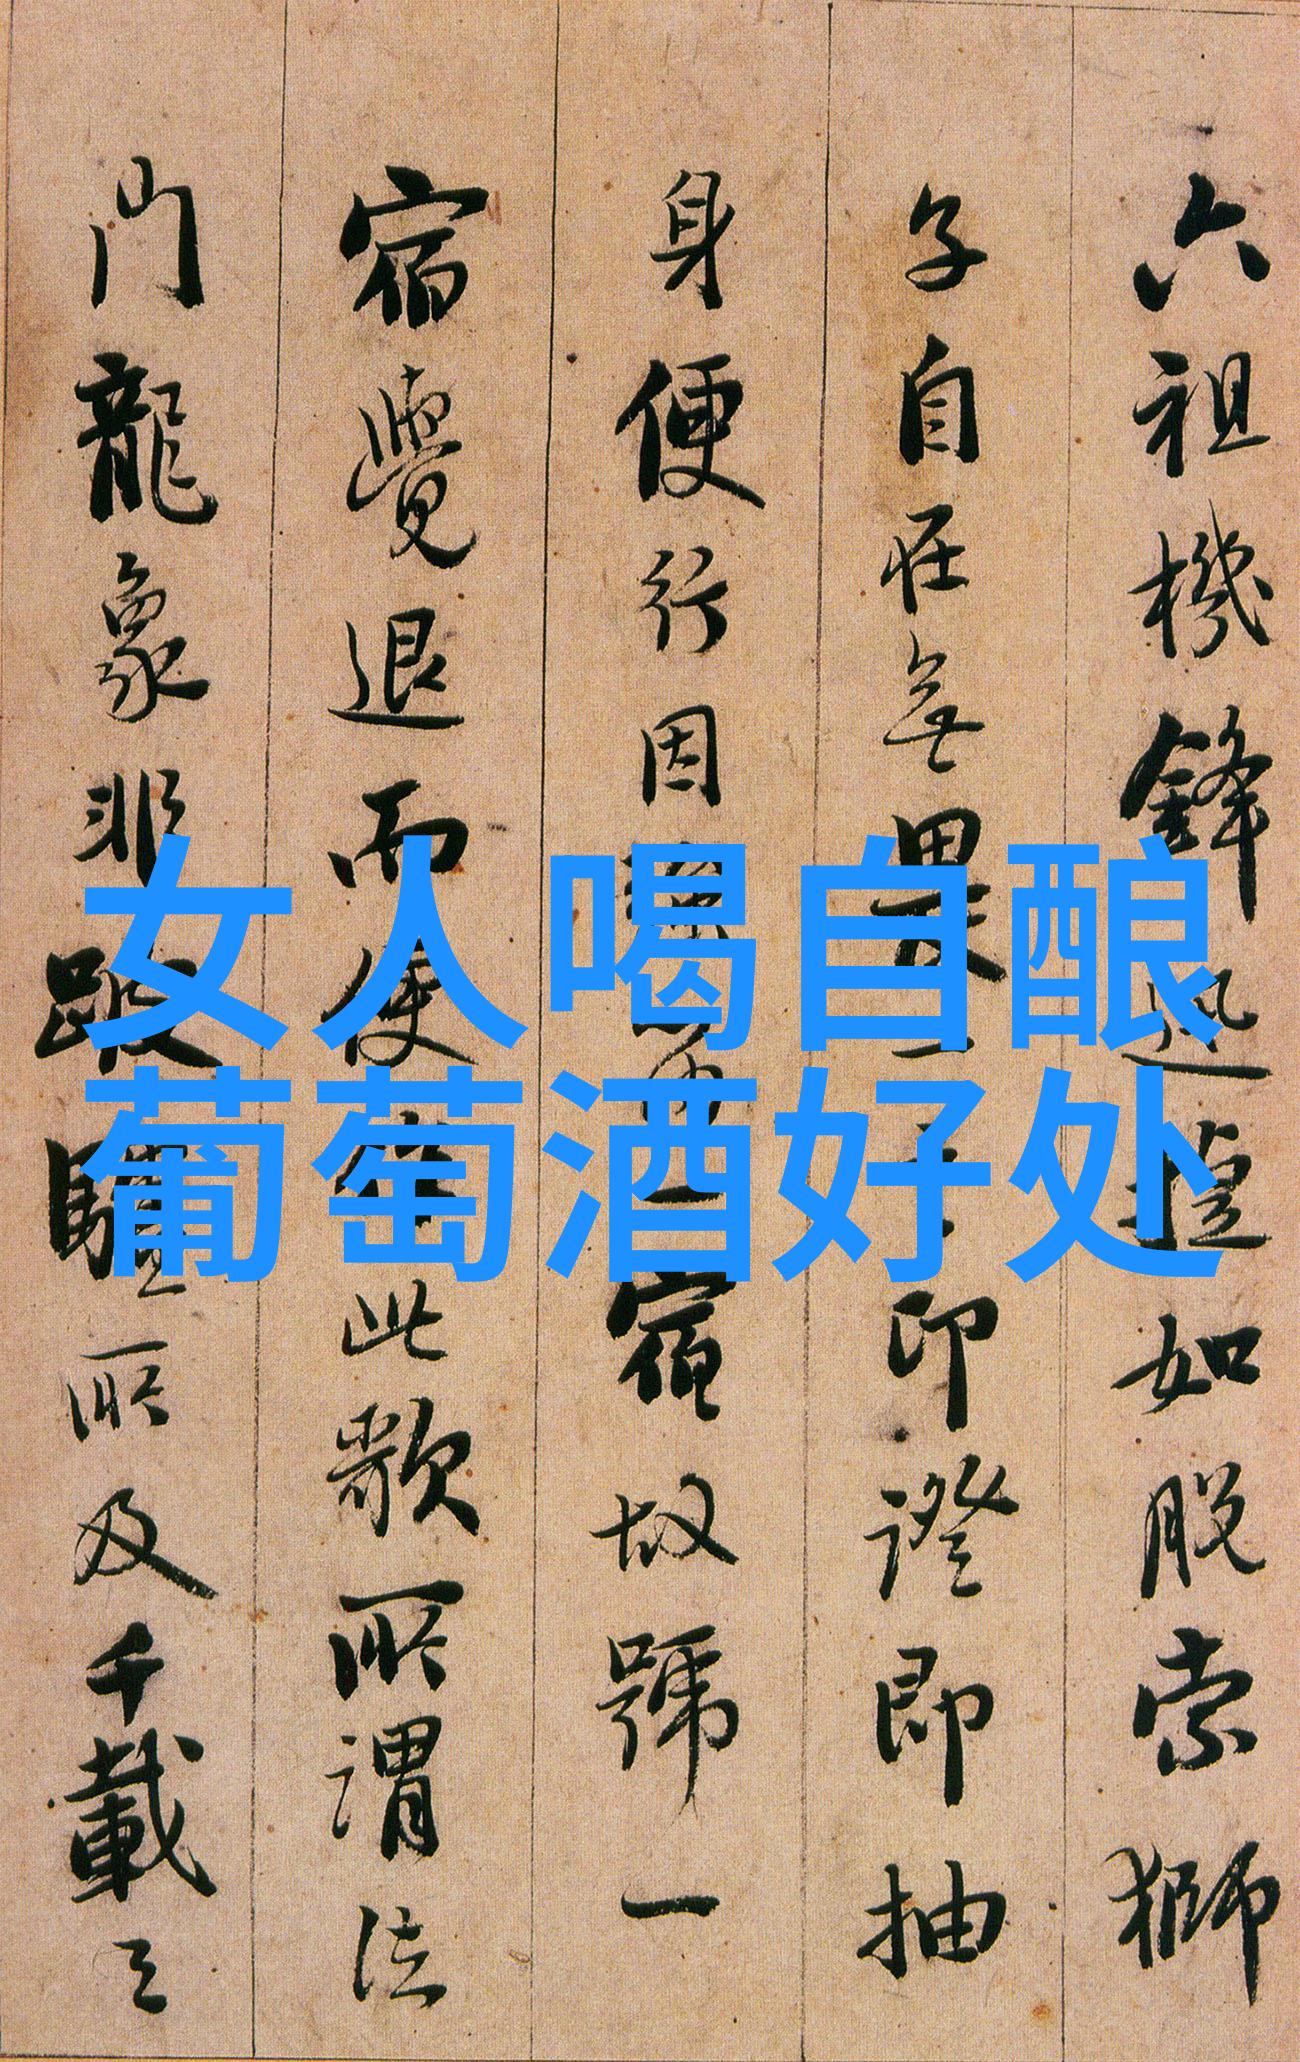 女人喝自酿
葡萄酒好处
六祖機鋒迅捷如脫索獅
子自在無畏
印證即抽
身便行因
宿故號一
宿覺退而便
此歌所謂法
門龍象非跛驢所及千載之